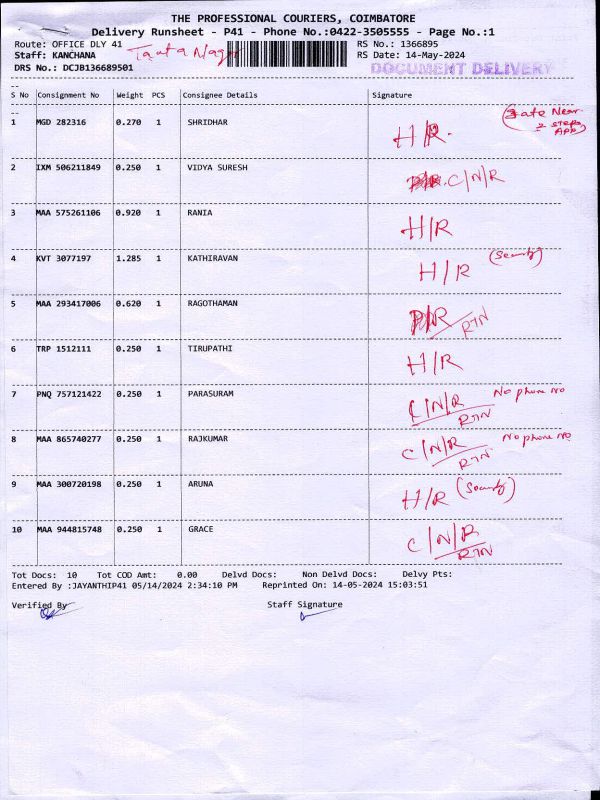 THE PROFESSIONAL COURIERS, COIMBATORE
Delivery Runsheet - P41 - Phone No.:0422-3505555 - Page No.:1
Route: OFFICE DLY 41 RS No.: 1366895
Staff: KANCHANA RS Date: 14-May-2024
DRS No.: DCJB136689501 DOCUMENT DELIVERY
S No Consignment No Weight PCS Consignee Details Signature
1 MGD 282316 0.270 1 SHRIDHAR H/R. Gate Near 2 steps
2 IXM 506211849 0.250 1 VIDYA SURESH C/N/R
3 MAA 575261106 0.920 1 RANIA H/R
4 KVT 3077197 1.285 1 KATHIRAVAN H/R (Security)
5 MAA 293417006 0.620 1 RAGOTHAMAN RTN
6 TRP 1512111 0.250 1 TIRUPATHI H/R
7 PNQ 757121422 0.250 1 PARASURAM C/N/R RTN No phone No
8 MAA 865740277 0.250 1 RAJKUMAR C/N/R RTN No phone No
9 MAA 300720198 0.250 1 ARUNA H/R (Security)
10 MAA 944815748 0.250 1 GRACE C/N/R RTN
Tot Docs: 10 Tot COD Amt: 0.00 Delvd Docs: Non Delvd Docs: Delvy Pts:
Entered By :JAYANTHIP41 05/14/2024 2:34:10 PM Reprinted On: 14-05-2024 15:03:51
Verified By Staff Signature